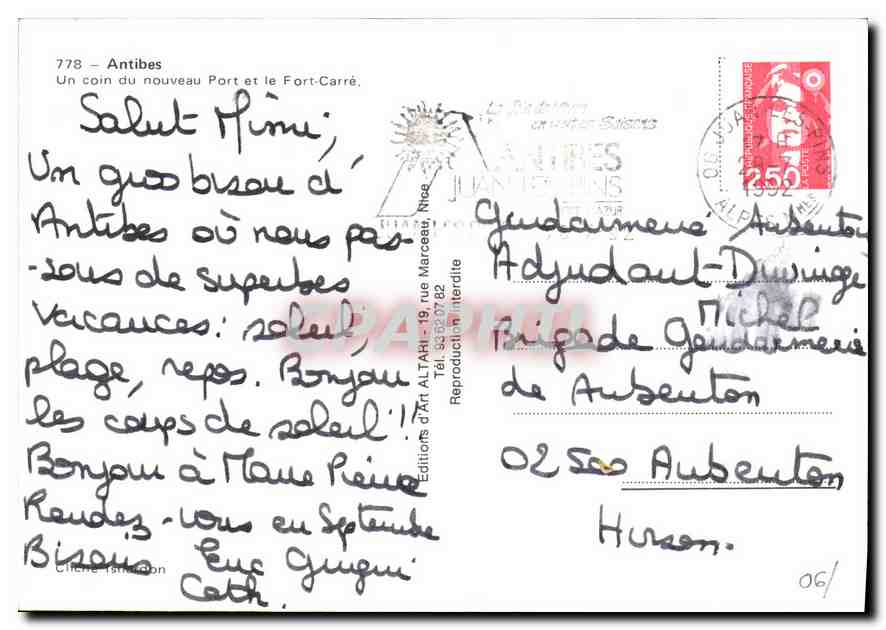 778 - Antibes
Un coin du nouveau Port et le Fort-Carré.
Salut Mimi,
Un gros bisou d'
Antibes où nous pas-
-sons de superbes
vacances : soleil,
plage, repos. Bonjour
les coups de soleil !!
Bonjour à Marie Pierre
Rendez-vous en Septembre
Bisous Eric Guigui
Cath.
Cliché
Editions d'Art ALTARI - 19, rue Marceau, Nice
Tél. 93 62 07 82
Reproduction interdite
en vertes Saisons
ANTIBES
JUAN LES PINS
REPUBLIQUE FRANÇAISE
LA POSTE
2,50
06 JUAN-LES-PINS
1992
ALPES
Gendarmerie Aubenton
Adjudant
Michel
Brigade Gendarmerie
de Aubenton
02500 Aubenton
Hirson.
06/
CPAPHIL